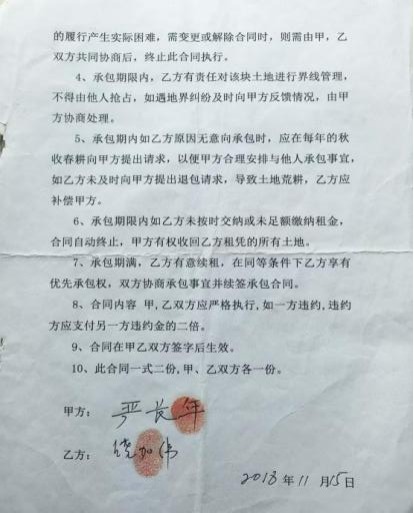 的履行产生实际困难，需变更或解除合同时，则需由甲，乙
双方共同协商后，终止此合同执行。
4、承包期限内，乙方有责任对该块土地进行界线管理，
不得由他人抢占，如遇地界纠纷及时向甲方反馈情况，由甲
方协商处理。
5、承包期内如乙方原因无意向承包时，应在每年的秋
收春耕向甲方提出请求，以便甲方合理安排与他人承包事宜，
如乙方未及时向甲方提出退包请求，导致土地荒耕，乙方应
补偿甲方。
6、承包期限内如乙方未按时交纳或未足额缴纳租金，
合同自动终止，甲方有权收回乙方租凭的所有土地。
7、承包期满，乙方有意续租，在同等条件下乙方享有
优先承包权，双方协商承包事宜并续签承包合同。
8、合同内容 甲,乙双方应严格执行,如一方违约,违约
方应支付另一方违约金的二倍。
9、合同在甲乙双方签字后生效。
10、此合同一式二份,甲、乙双方各一份。
甲方： 严长年
乙方： 饶加伟
2018年11月15日